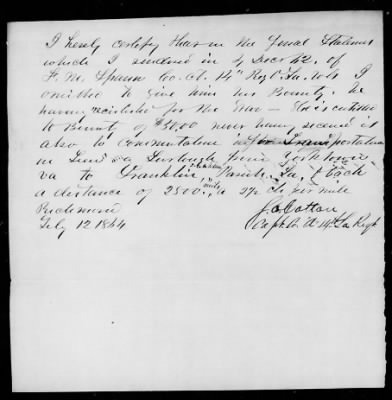 I hereby certify that in the Final Statement
which I rendered in 4 Decr 62, of
F. M. Spann Co. A. 14" Regt La. Vols I
omitted to give him his Bounty. He
having reinlisted for the War — He is entitled
to Bounty of $50.00 never having received it
also to Commutation in for Transportation
in lieu of Furlough from Yorktown
Va to Franklin, Parish, La, & back
a distance of 2500 miles, a 2½ cts per mile
Richmond
Feby 12 1864
J. Cotton
Capt. Co. A 14th La Regt